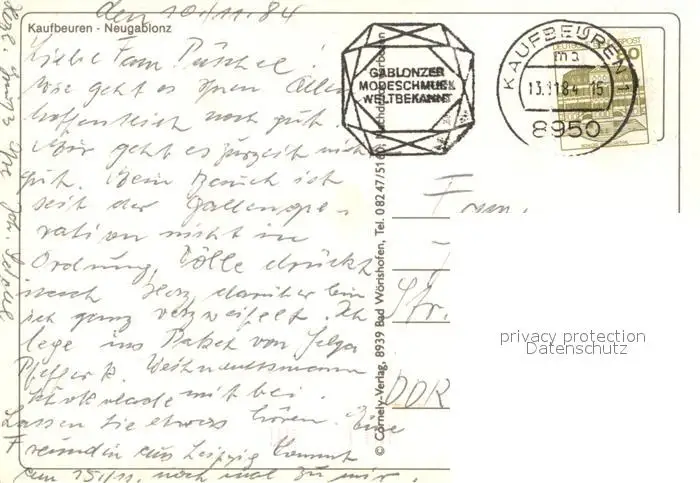 den 10./11.84
Kaufbeuren - Neugablonz
Liebe Fam. Püschel!
Wie geht es Ihnen Allen
hoffentlich noch gut.
Mir geht es zurzeit nicht
gut. Mein Bauch ist
seit der Gallenope-
ration nicht in
Ordnung, Cölle drückt
noch Herz, darüber bin
ich ganz verzweifelt. Ich
lege ins Paket von Helga
Pfeffer k. Weihnachtsmann
schokolade mit bei.
Lassen Sie etwas hören. Eine
Freundin aus Leipzig kommt
am 15./11. noch mal zu mir.
Herzl. Grüße Ihre Joh.
GABLONZER
MODESCHMUCK
WELTBEKANNT
KAUFBEUREN 1
13.11.84 15
8950
DEUTSCHE BUNDESPOST
© Cornely-Verlag, 8939 Bad Wörishofen, Tel. 08247/5160, Nachdruck verboten
Fam.
Str.
DDR
privacy protection
Datenschutz